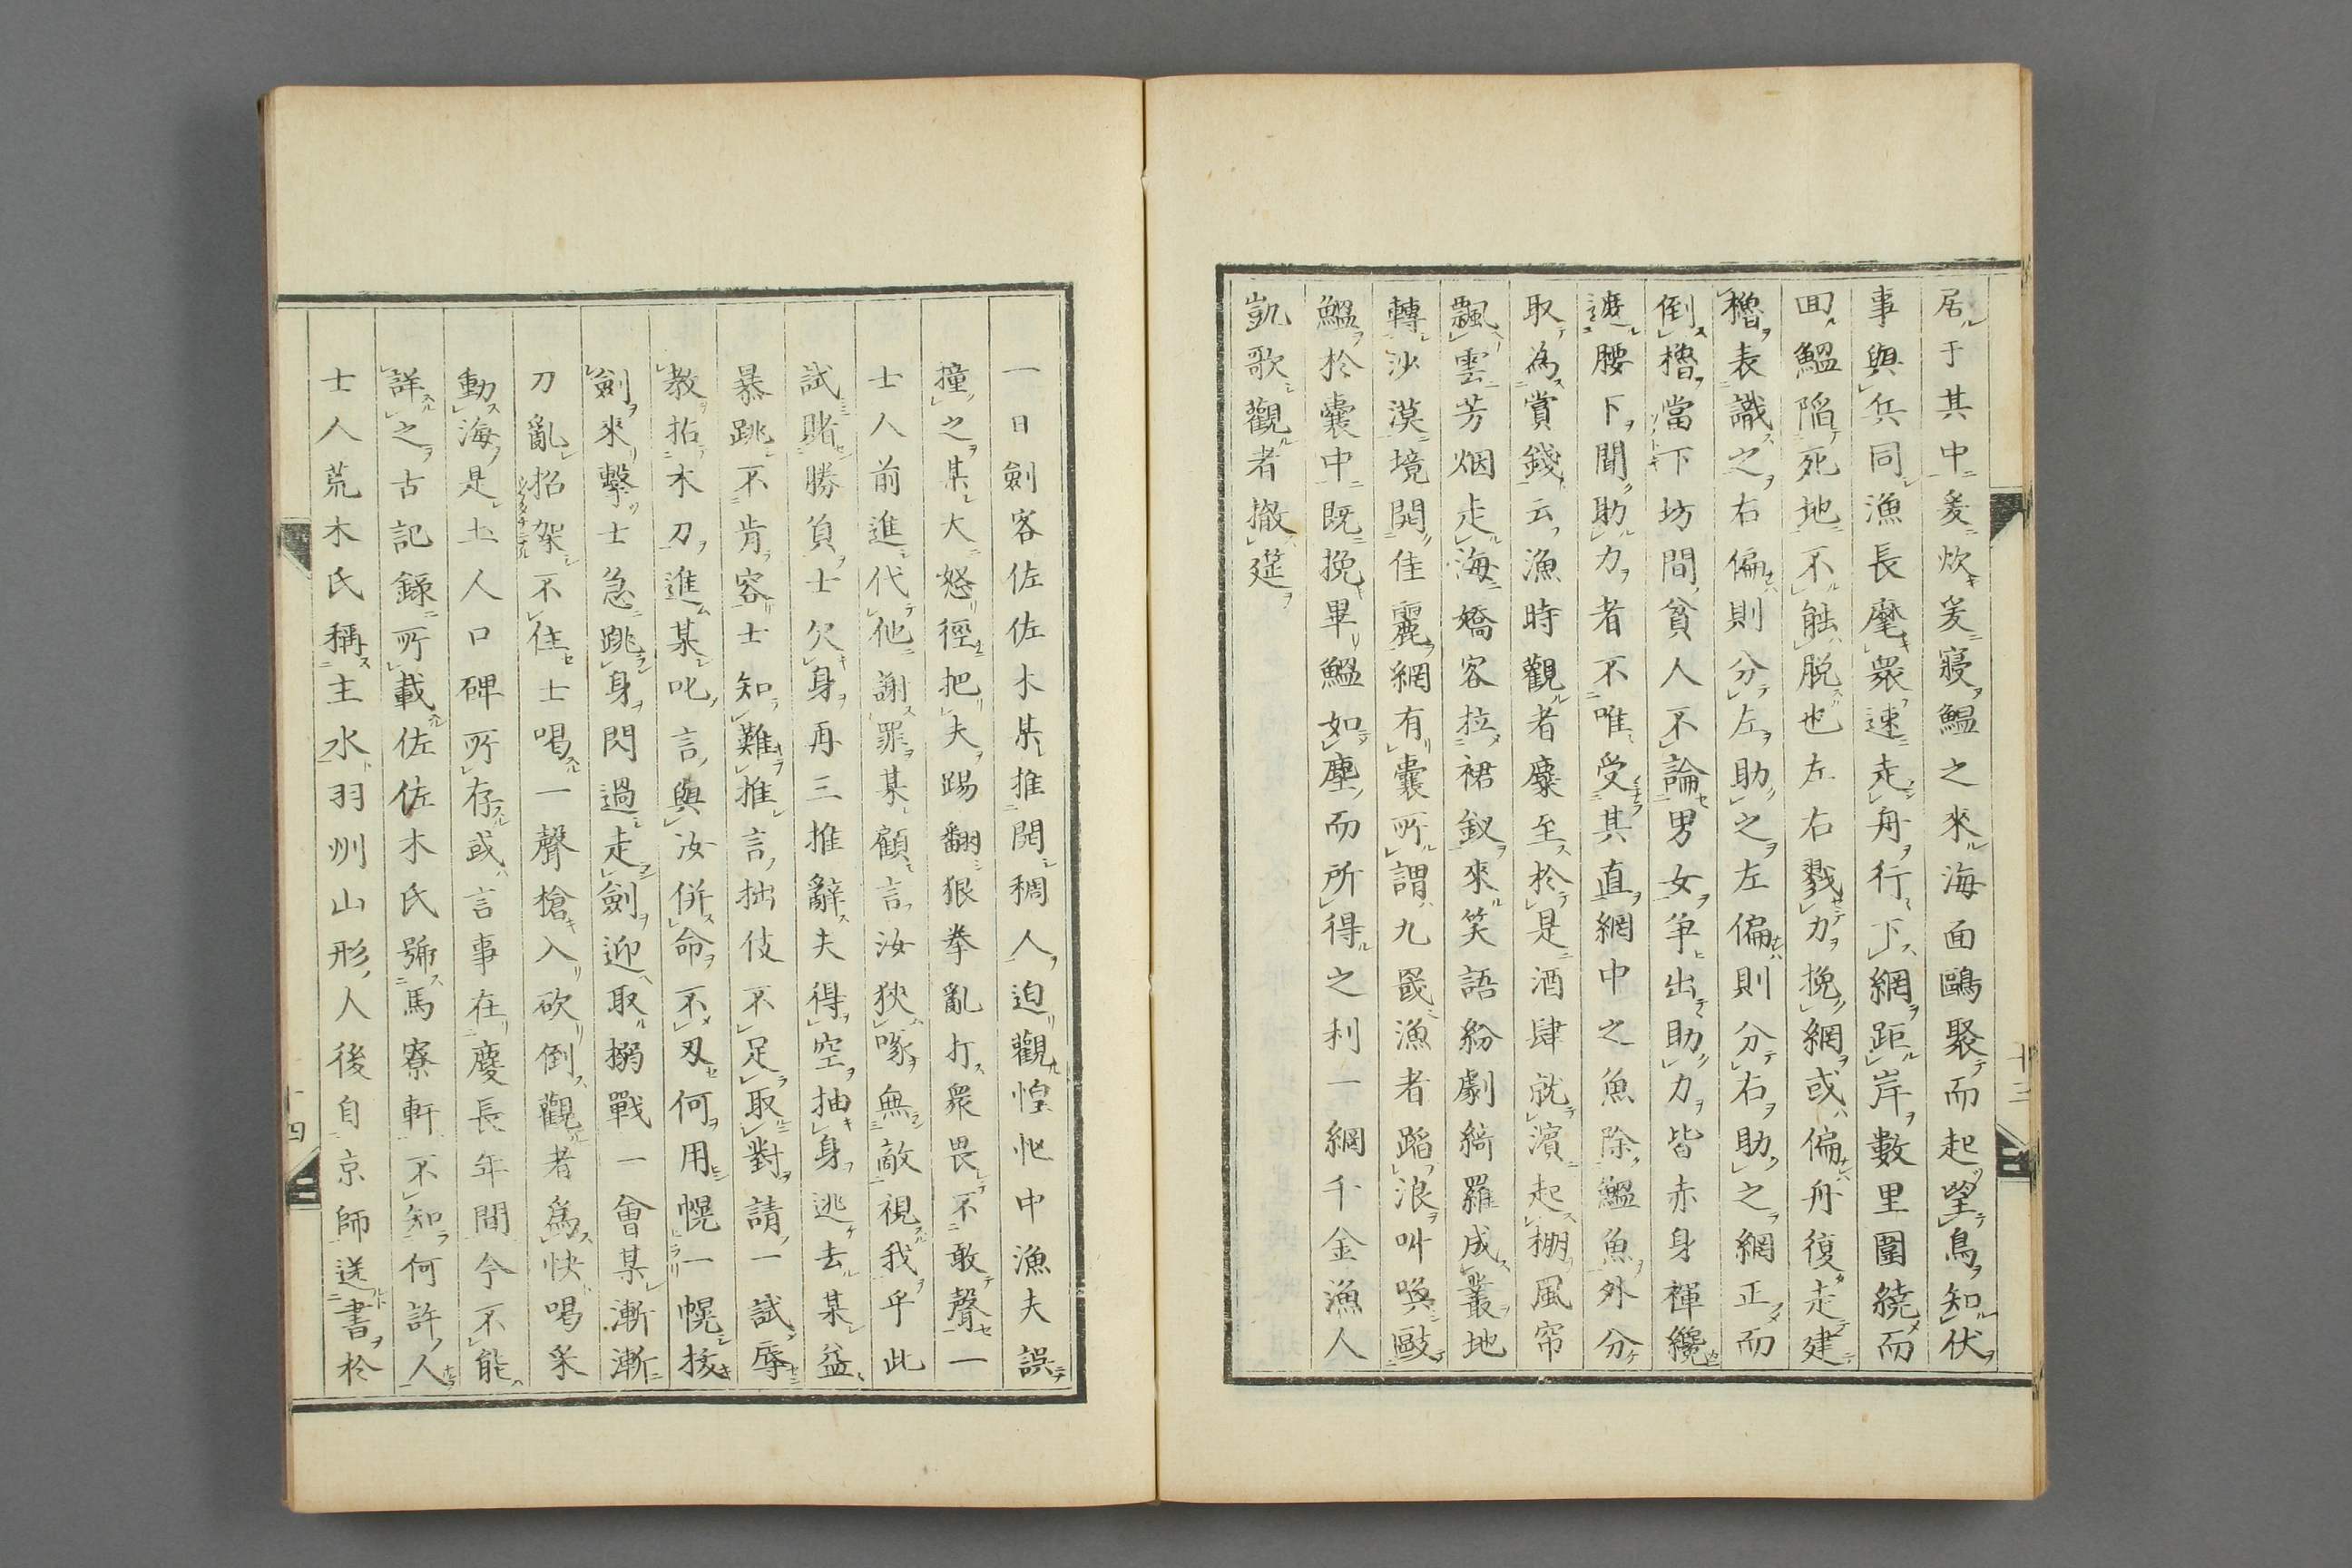 居于其中爰炊爰寢鰮之來海面鷗聚而起望鳥知伏
事與兵同漁長麾衆速走舟行下網距岸數里圍繞而
回鰮陷死地不能脱也左右戮力挽網或偏舟復走建
櫓表識之右偏則分左助之左偏則分右助之網正而
倒櫓當下坊間貧人不論男女爭出助力皆赤身褌纔
遮腰下聞助力者不唯受其直網中之魚除鰮魚外分
取為賞錢云漁時觀者麋至於是酒肆就濱起棚風帘
飄雲芳烟走海嬌容拉裙釵來笑語紛劇綺羅成叢地
轉沙漠境開佳麗網有囊所謂九罭漁者蹈浪叫喚敺
鰮於囊中既挽畢鰮如塵而所得之利一網千金漁人
凱歌觀者撤筵
十三
一日劍客佐佐木某推開稠人迫觀惶怩中漁夫誤
撞之某大怒徑把夫踢翻狠拳亂打衆畏不敢聲一
士人前進代他謝罪某顧言汝狹啄無敵視我乎此
試賭勝負士欠身再三推辭夫得空抽身逃去某益
暴跳不肯容士知難推言拙伎不足取對請一試辱
教拈木刀進某叱言與汝併命不刄何用幌一幌拔
劍來擊士急跳身閃過走劍迎取搦戰一會某漸漸
刀亂招架不住士喝一聲槍入砍倒觀者爲快喝采
動海是土人口碑所存或言事在慶長年間今不能
詳之古記錄所載佐佐木氏號馬寮軒不知何許人
士人荒木氏稱主水羽州山形人後自京師送書於
十四